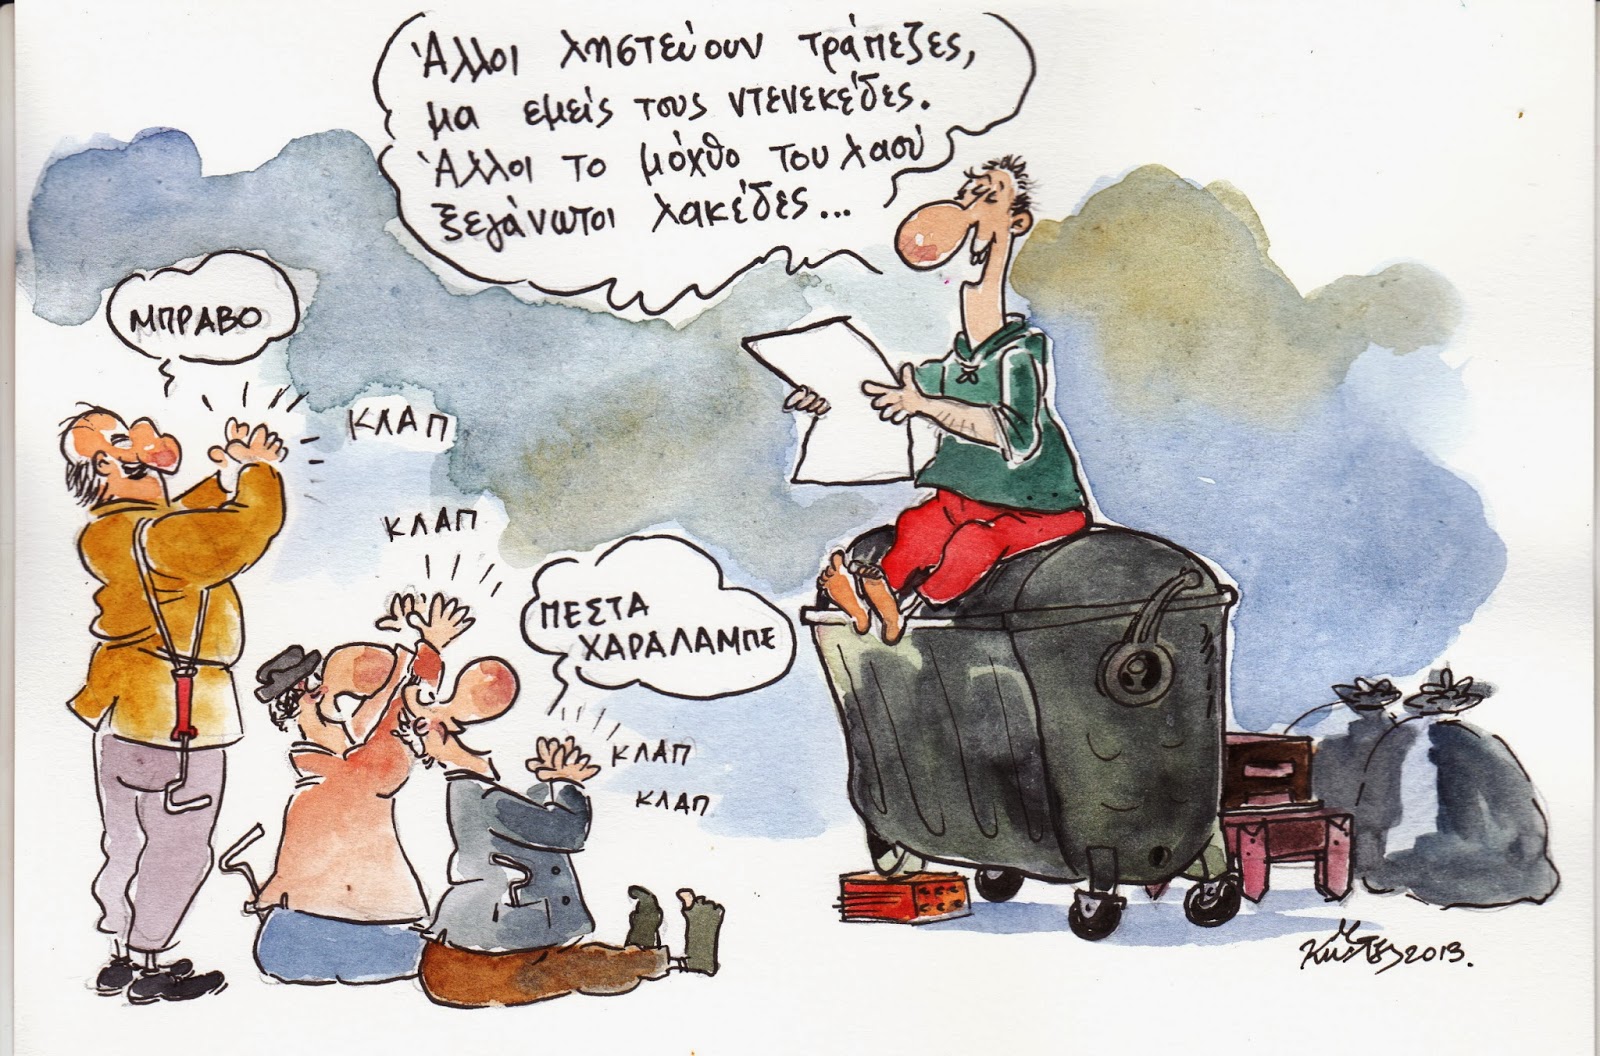 Άλλοι ληστεύουν τράπεζες,
μα εμείς τους ντενεκέδες.
Άλλοι το μόχθο του λαού
ξεγάνωτοι λακέδες...
ΜΠΡΑΒΟ
ΚΛΑΠ
ΚΛΑΠ
ΠΕΣΤΑ
ΧΑΡΑΛΑΜΠΕ
ΚΛΑΠ
ΚΛΑΠ
2013.